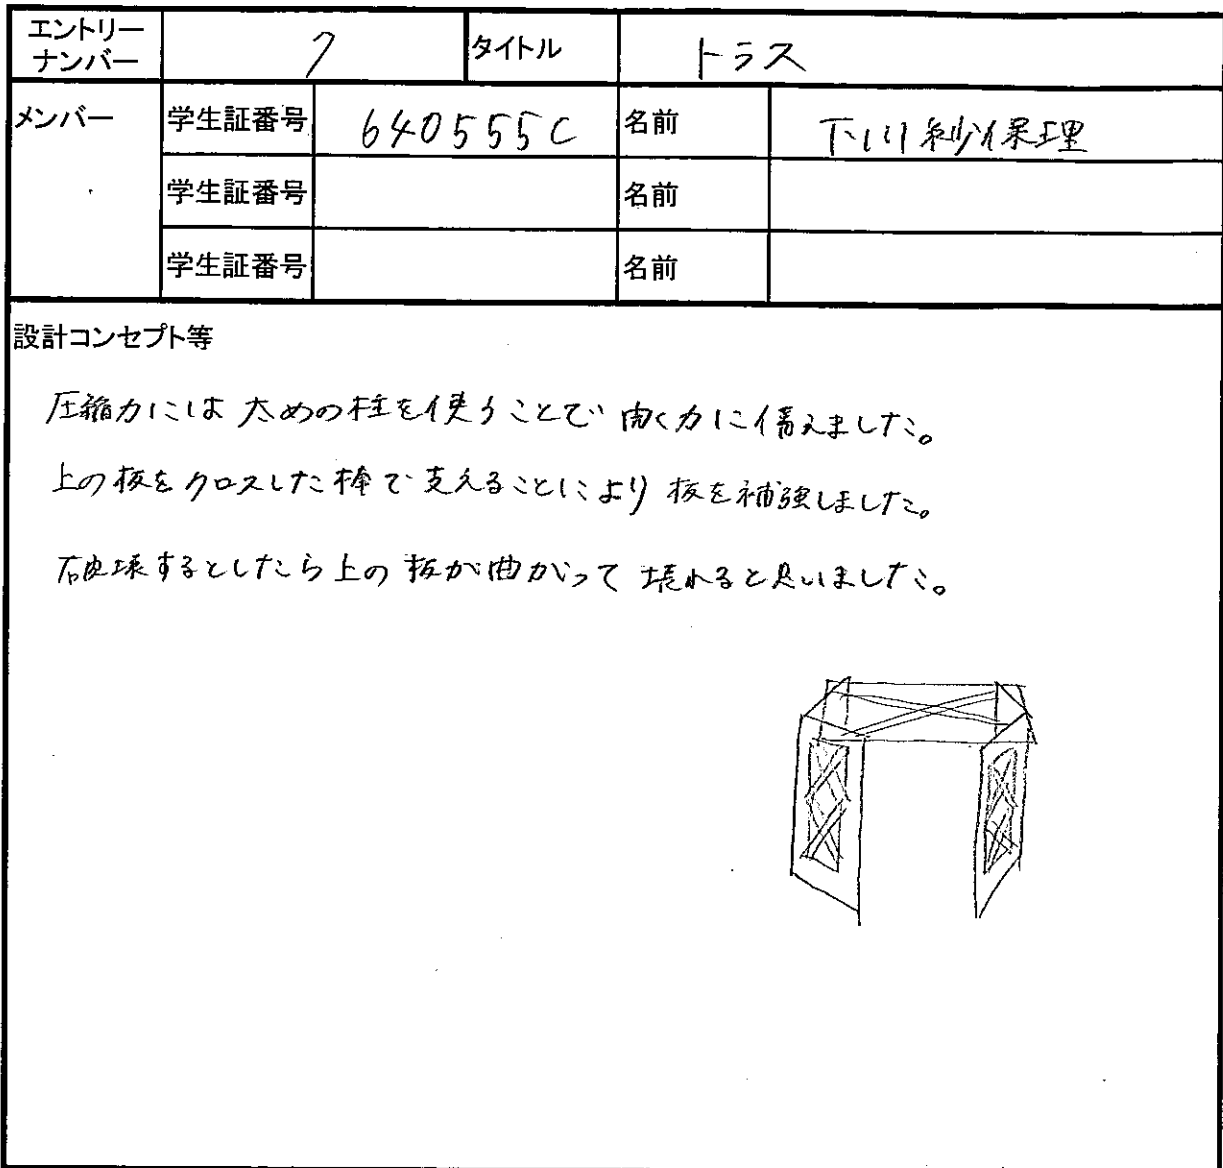 エントリーナンバー 7 タイトル トラス
メンバー 学生証番号 640555C 名前 下川紗保理
学生証番号 名前
学生証番号 名前
設計コンセプト等
圧縮力には太めの柱を使うことで 働く力に備えました。
上の板をクロスした棒で支えることにより 板を補強しました。
破壊するとしたら上の板が曲がって壊れると思いました。